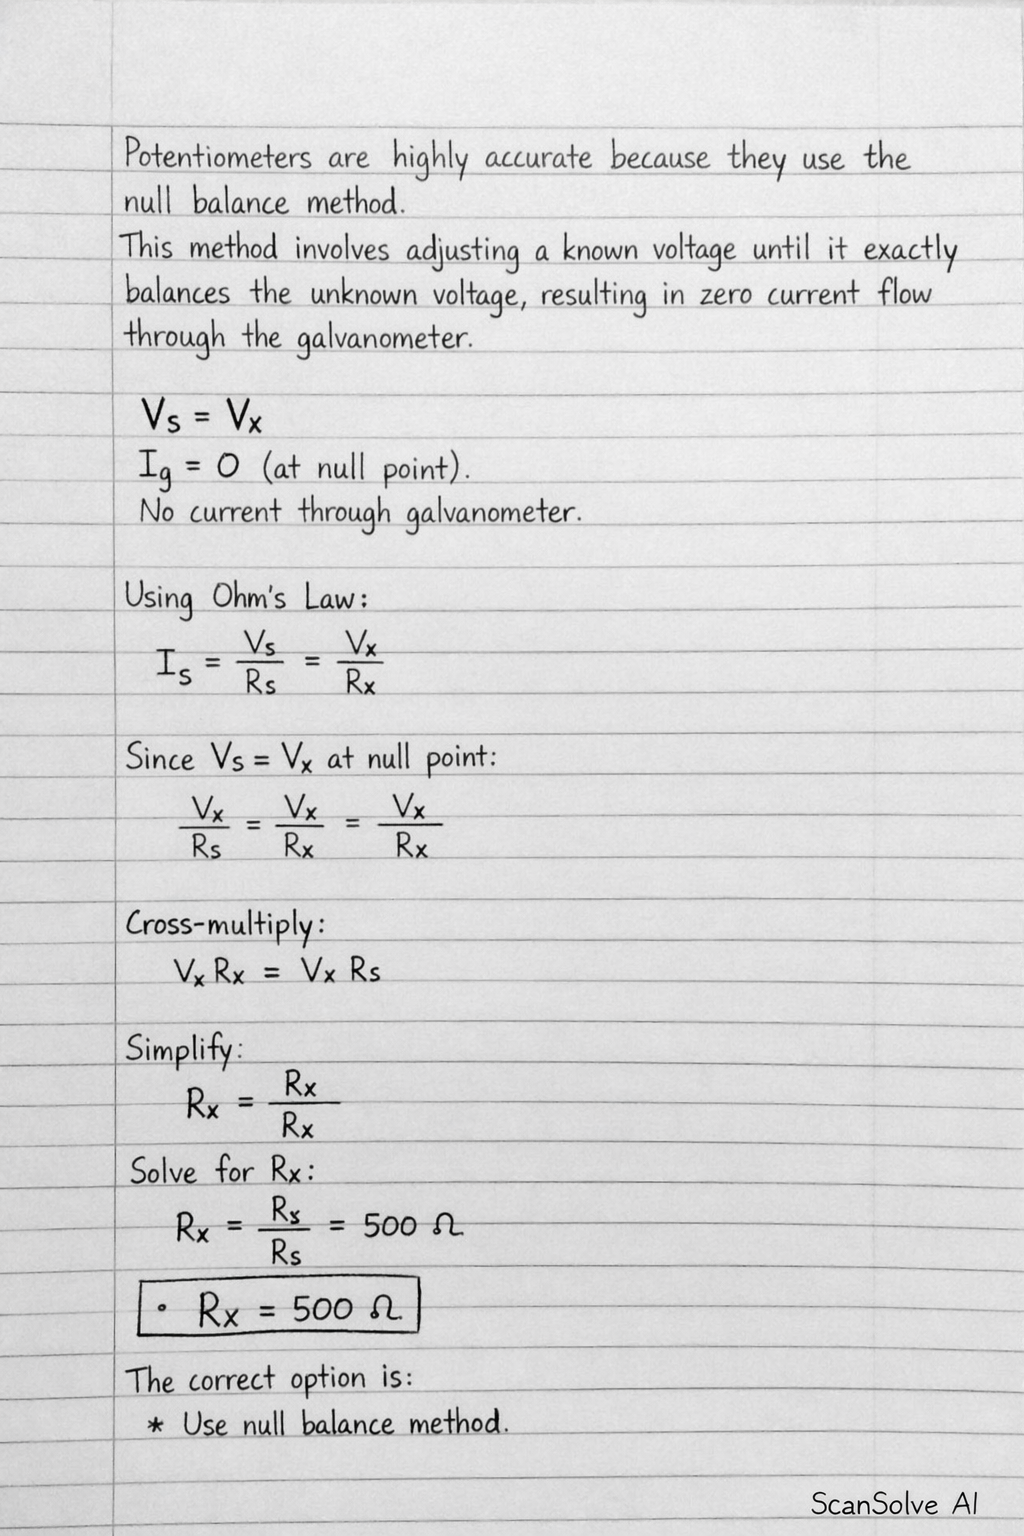 Potentiometers are highly accurate because they use the
null balance method.
This method involves adjusting a known voltage until it exactly
balances the unknown voltage, resulting in zero current flow
through the galvanometer.
Vs = Vx
Ig = 0 (at null point).
No current through galvanometer.
Using Ohm's Law:
Is = Vs/Rs = Vx/Rx
Since Vs = Vx at null point:
Vx/Rs = Vx/Rx = Vx/Rx
Cross-multiply:
Vx Rx = Vx Rs
Simplify:
Rx = Rx/Rx
Solve for Rx:
Rx = Rs/Rs = 500 Ω
• Rx = 500 Ω
The correct option is:
* Use null balance method.
ScanSolve AI